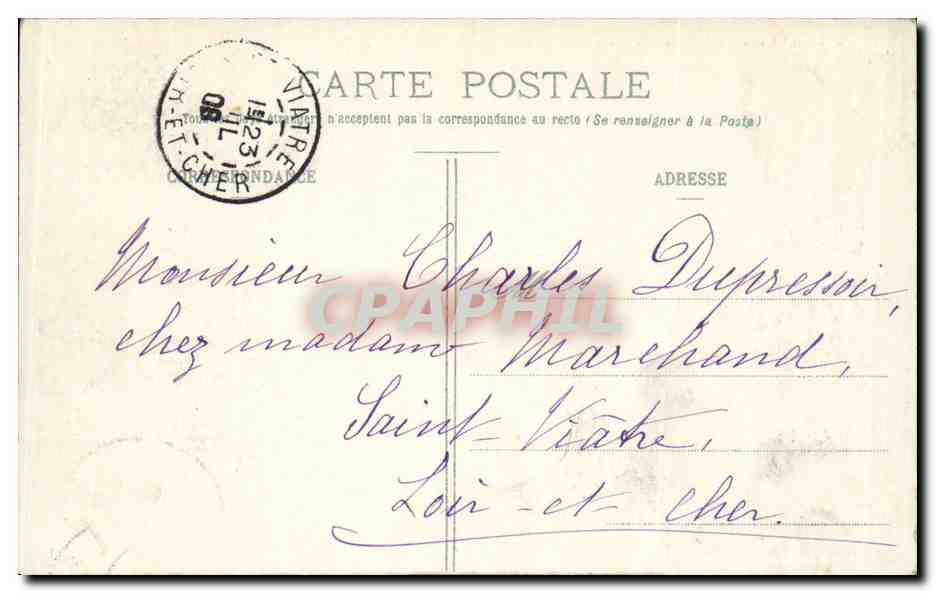 CARTE POSTALE
Tous les pays étrangers n'acceptent pas la correspondance au recto (Se renseigner à la Poste)
CORRESPONDANCE
ADRESSE
VIATRE
23
08
-ET-CHER
Monsieur Charles Dupressoir,
chez madame Marchand,
Saint-Viâtre,
Loir-et-Cher.
CPAPHIL